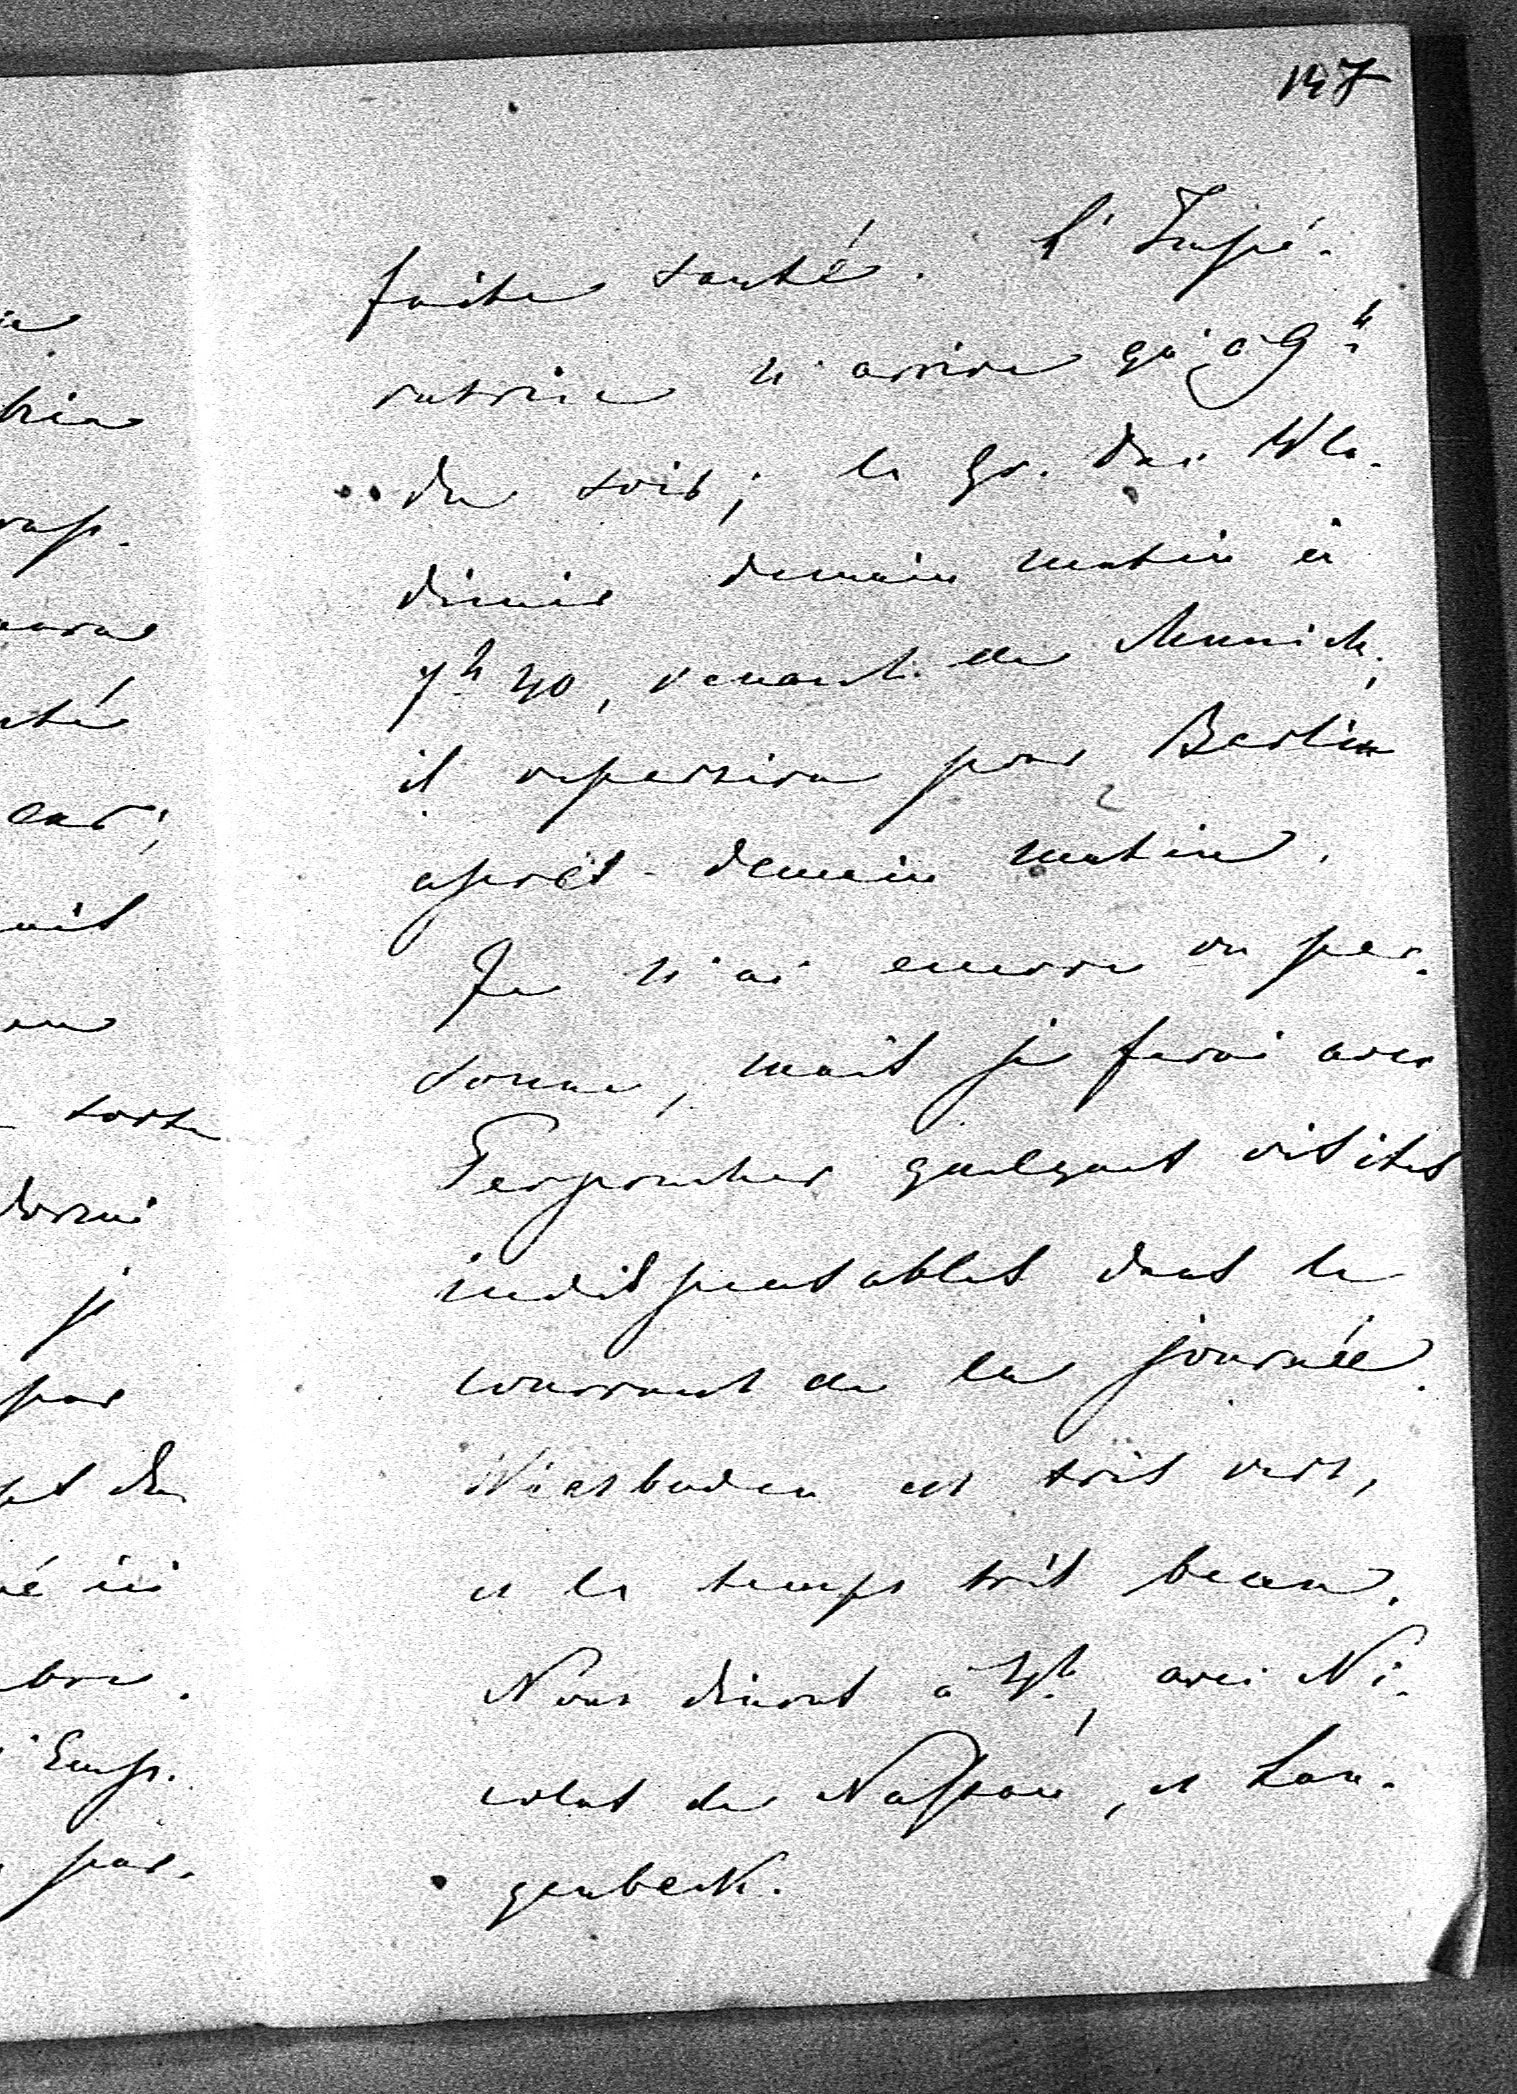 147
faite santé. L'Impé-
ratrice n'arrive qu'à 9h
du soir; le Gr. Duc Wla-
dimir demain matin à
7h 40, venant de Munich;
il repartira pour Berlin
après-demain matin.
Je n'ai encore vu per-
sonne, mais je ferai avec
Perponcher quelques visites
indispensables dans le
courrant de la journée.
Wiesbaden est très vert,
et le temps très beau.
Nous dinons à 4h, avec Ni-
colas de Nassau, et Lan-
genbeck.